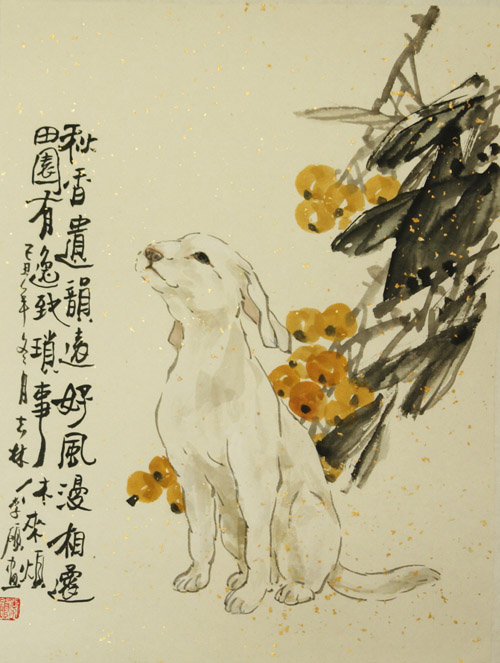 秋香遺韻遠好風漫相邀
田園有逸致瑣事未來煩
己丑年冬月吉林人李